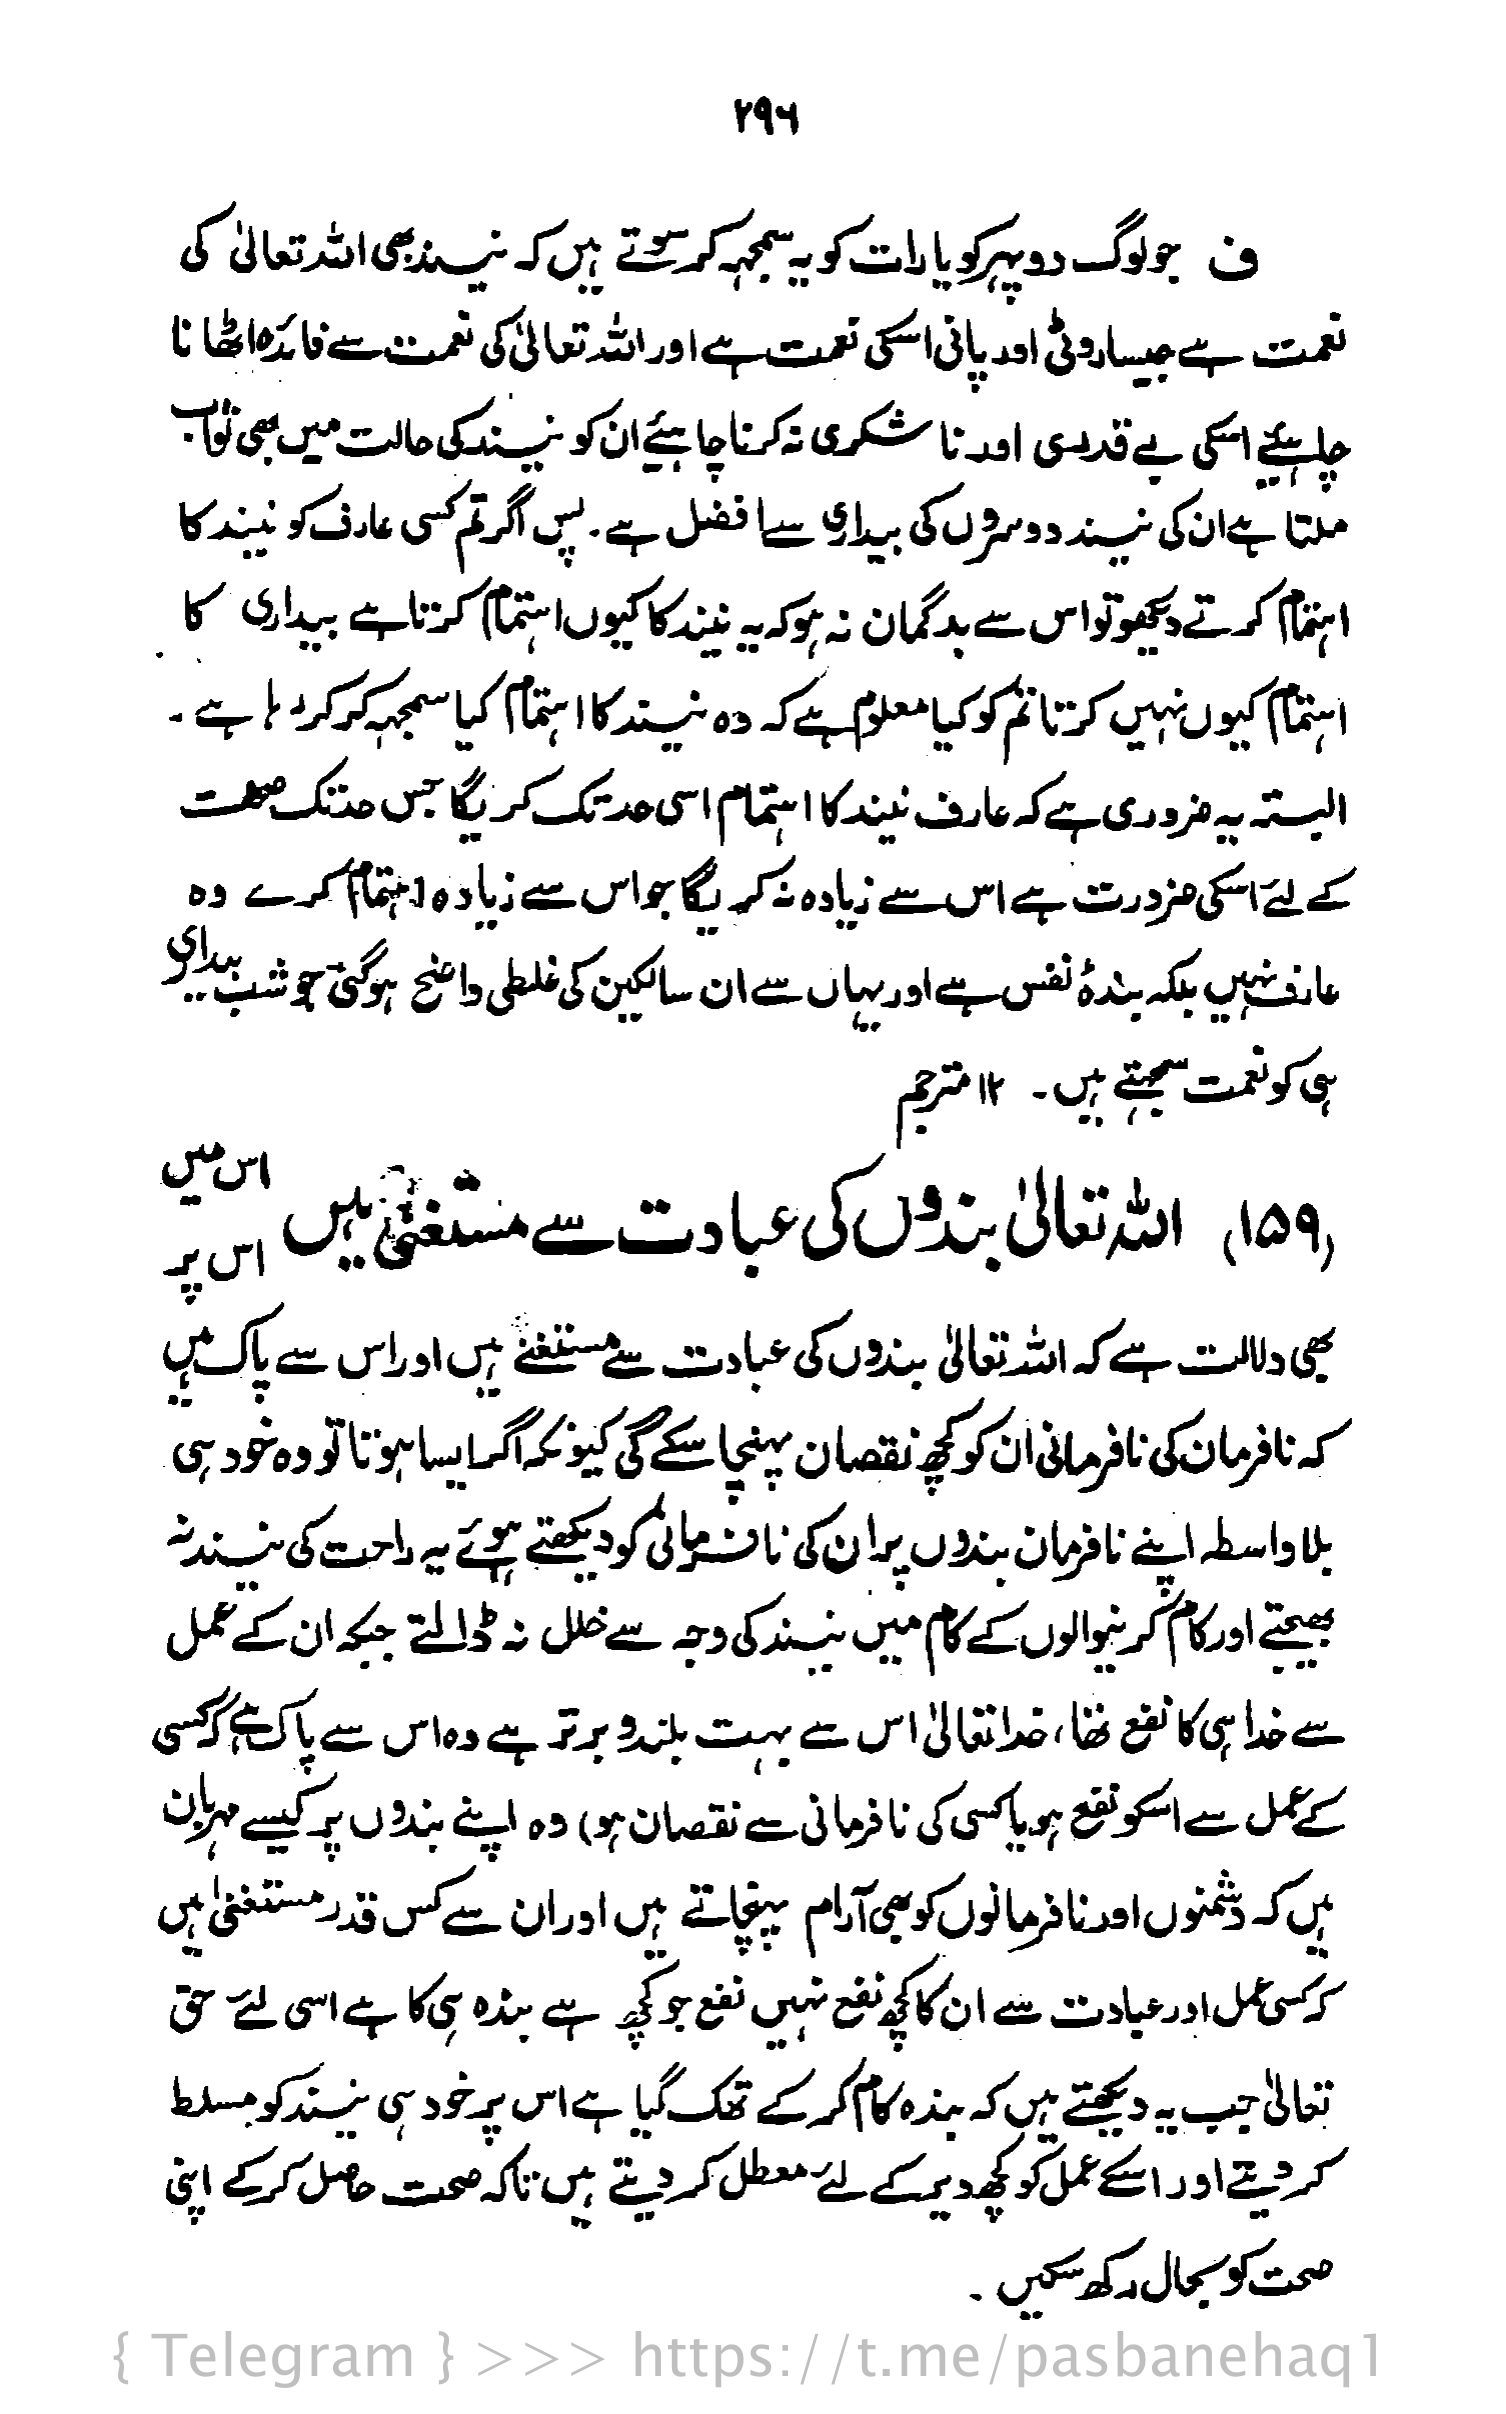 ۲۹۶
ف جو لوگ دوپہر کو یا رات کو یہ سمجہہ کر سوتے ہیں کہ نیند بھی اللہ تعالیٰ کی
نعمت ہے جیسا روٹی اور پانی اسکی نعمت ہے اور اللہ تعالیٰ کی نعمت سے فائدہ اٹھانا
چاہیئے اسکی بے قدری اور نا شکری نہ کرنا چاہیئے ان کو نیند کی حالت میں بھی ثواب
ملتا ہے ان کی نیند دوسروں کی بیداری سے افضل ہے۔ پس اگر تم کسی عارف کو نیند کا
اہتمام کرتے دیکھو تو اس سے بدگمان نہ ہو کہ یہ نیند کا کیوں اہتمام کرتا ہے بیداری کا
اہتمام کیوں نہیں کرتا تم کو کیا معلوم ہے کہ وہ نیند کا اہتمام کیا سمجہہ کر کر رہا ہے۔
البتہ یہ ضروری ہے کہ عارف نیند کا اہتمام اسی حد تک کریگا جس حد تک صحت
کے لئے اسکی ضرورت ہے اس سے زیادہ نہ کریگا جو اس سے زیادہ اہتمام کرے وہ
عارف نہیں بلکہ بندۂ نفس ہے اور یہاں سے ان سالکین کی غلطی واضح ہوگئی جو شب بیداری
ہی کو نعمت سمجہتے ہیں۔ ۱۲ مترجم
(۱۵۹) اللہ تعالیٰ بندوں کی عبادت سے مستغنیٰ ہیں اس میں
اس پر
بھی دلالت ہے کہ اللہ تعالیٰ بندوں کی عبادت سے مستغنے ہیں اور اس سے پاک ہیں
کہ نافرمان کی نافرمانی ان کو کچھ نقصان پہنچا سکے گی کیونکہ اگر ایسا ہوتا تو وہ خود ہی
بلا واسطہ اپنے نافرمان بندوں پر ان کی نافرمانی کو دیکھتے ہوئے یہ راحت کی نیند نہ
بھیجتے اور کام کرنیوالوں کے کام میں نیند کی وجہ سے خلل نہ ڈالتے جبکہ ان کے عمل
سے خدا ہی کا نفع تھا، خدا تعالیٰ اس سے بہت بلند و برتر ہے وہ اس سے پاک ہے کہ کسی
کے عمل سے اسکو نفع ہو یا کسی کی نافرمانی سے نقصان ہو) وہ اپنے بندوں پر کیسے مہربان
ہیں کہ دشمنوں اور نافرمانوں کو بھی آرام پہنچاتے ہیں اور ان سے کس قدر مستغنیٰ ہیں
کہ کسی عمل اور عبادت سے ان کا کچھ نفع نہیں نفع جو کچھ ہے بندہ ہی کا ہے اسی لئے حق
تعالیٰ جب یہ دیکھتے ہیں کہ بندہ کام کر کے تھک گیا ہے اس پر خود ہی نیند کو مسلط
کر دیتے اور اسکے عمل کو کچھ دیر کے لئے معطل کر دیتے ہیں تاکہ صحت حاصل کر کے اپنی
صحت کو بحال رکھ سکیں۔
{ Telegram } >>> https://t.me/pasbanehaq1